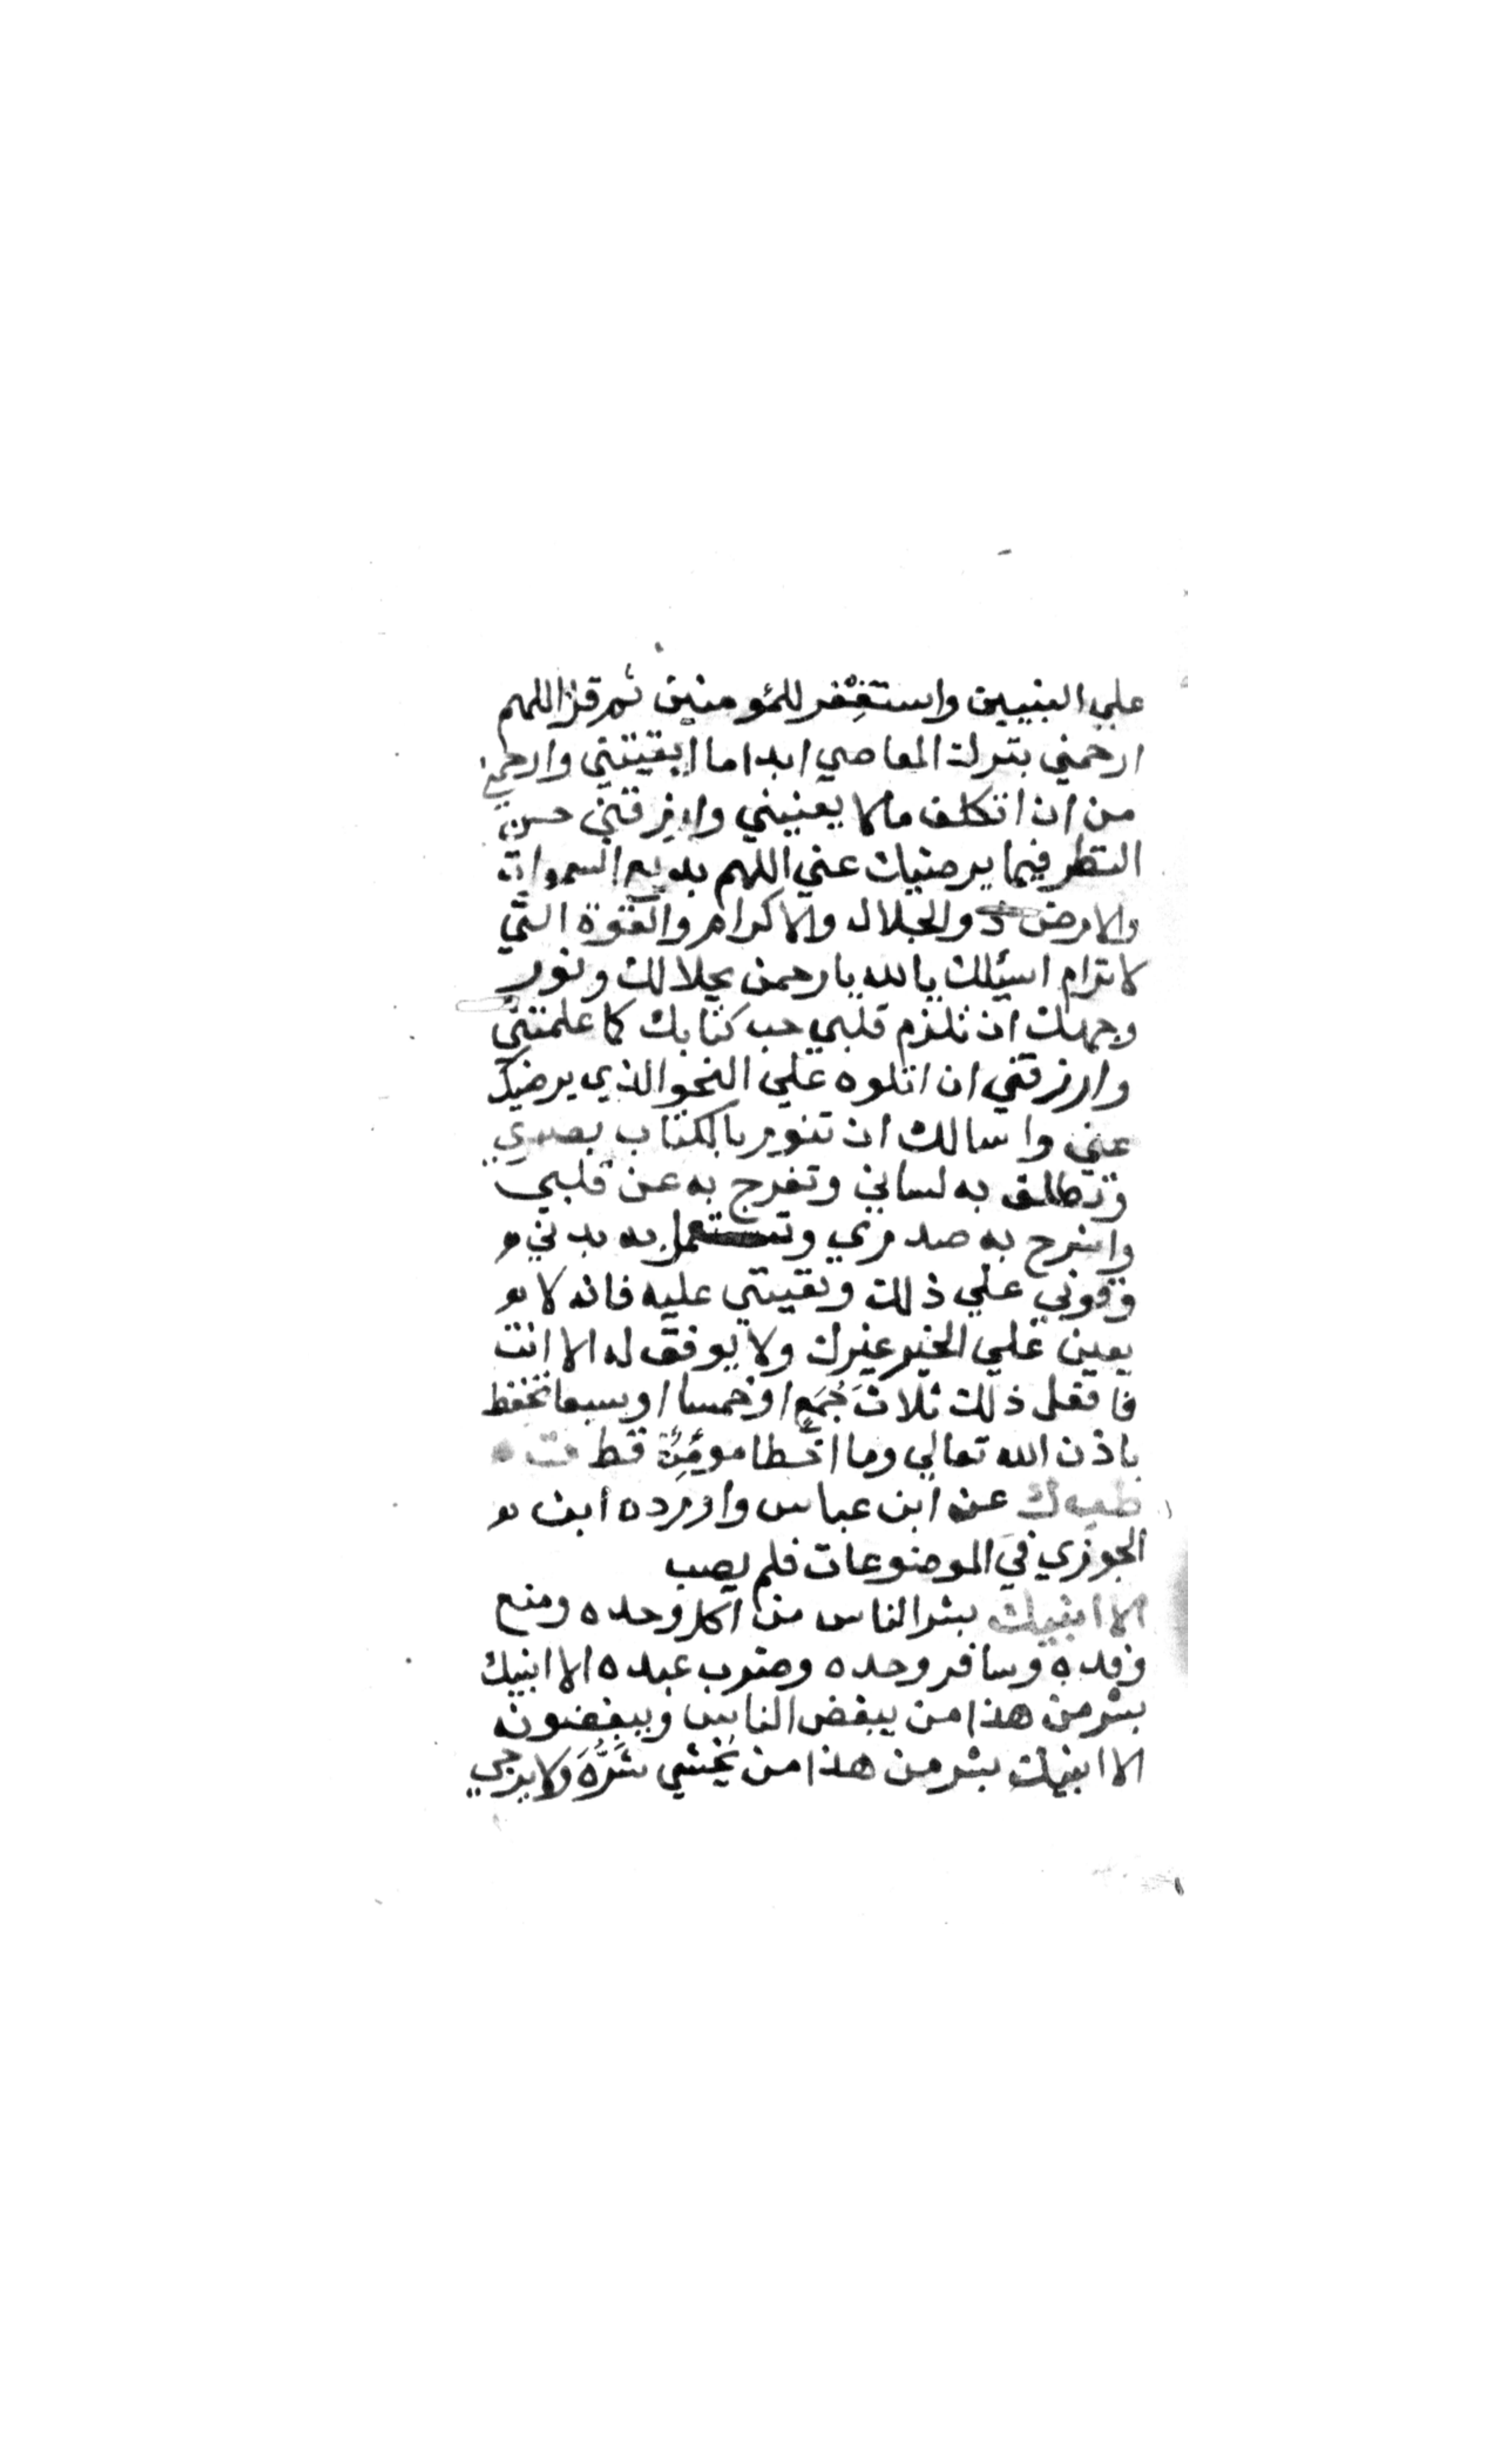 علي النبيين واستغفر للمؤمنين ثم قل اللهم
ارحمني بترك المعاصي ابدا ما ابقيتني وارحمني
من ان اتكلف مالا يعنيني وارزقني حسن
النظر فيما يرضيك عني اللهم بديع السموات
والارض ذو الجلال والاكرام والقوة التي
لا ترام اسئلك يا الله يا رحمن بجلالك ونور
وجهك ان تلزم قلبي حب كتابك كما علمتني
وارزقني ان اتلوه علي النحو الذي يرضيك
عني واسالك ان تنور بالكتاب بصري
وتطلق به لساني وتفرج به عن قلبي
واشرح به صدري وتستعمل به بدني
وقوني علي ذلك وتقيتي عليه فانه لا
يعين علي الخير غيرك ولا يوفق له الا انت
فافعل ذلك ثلاث جُمَع او خمسا او سبعا تحفظ
باذن الله تعالي وما اخطا مومن قط ت
طب ك عن ابن عباس واورده ابن
الجوزي في الموضوعات فلم يصب
الا انبيك بشر الناس من اكل وحده ومنع
رفده وسافر وحده وضرب عبده الا انبيك
بشر من هذا من يبغض الناس ويبغضونه
الا انبيك بشر من هذا من يخشي شَرُّهُ ولا يرجي